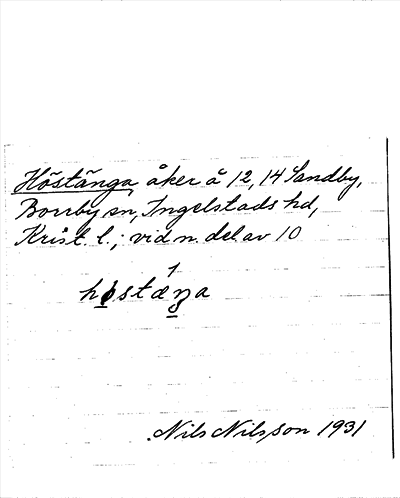 Höstänga, åker å 12, 14 Sandby,
Borrby sn, Ingelstads hd,
Krist. l.; vid n. del av 10
1
høstæŋa
Nils Nilsson 1931